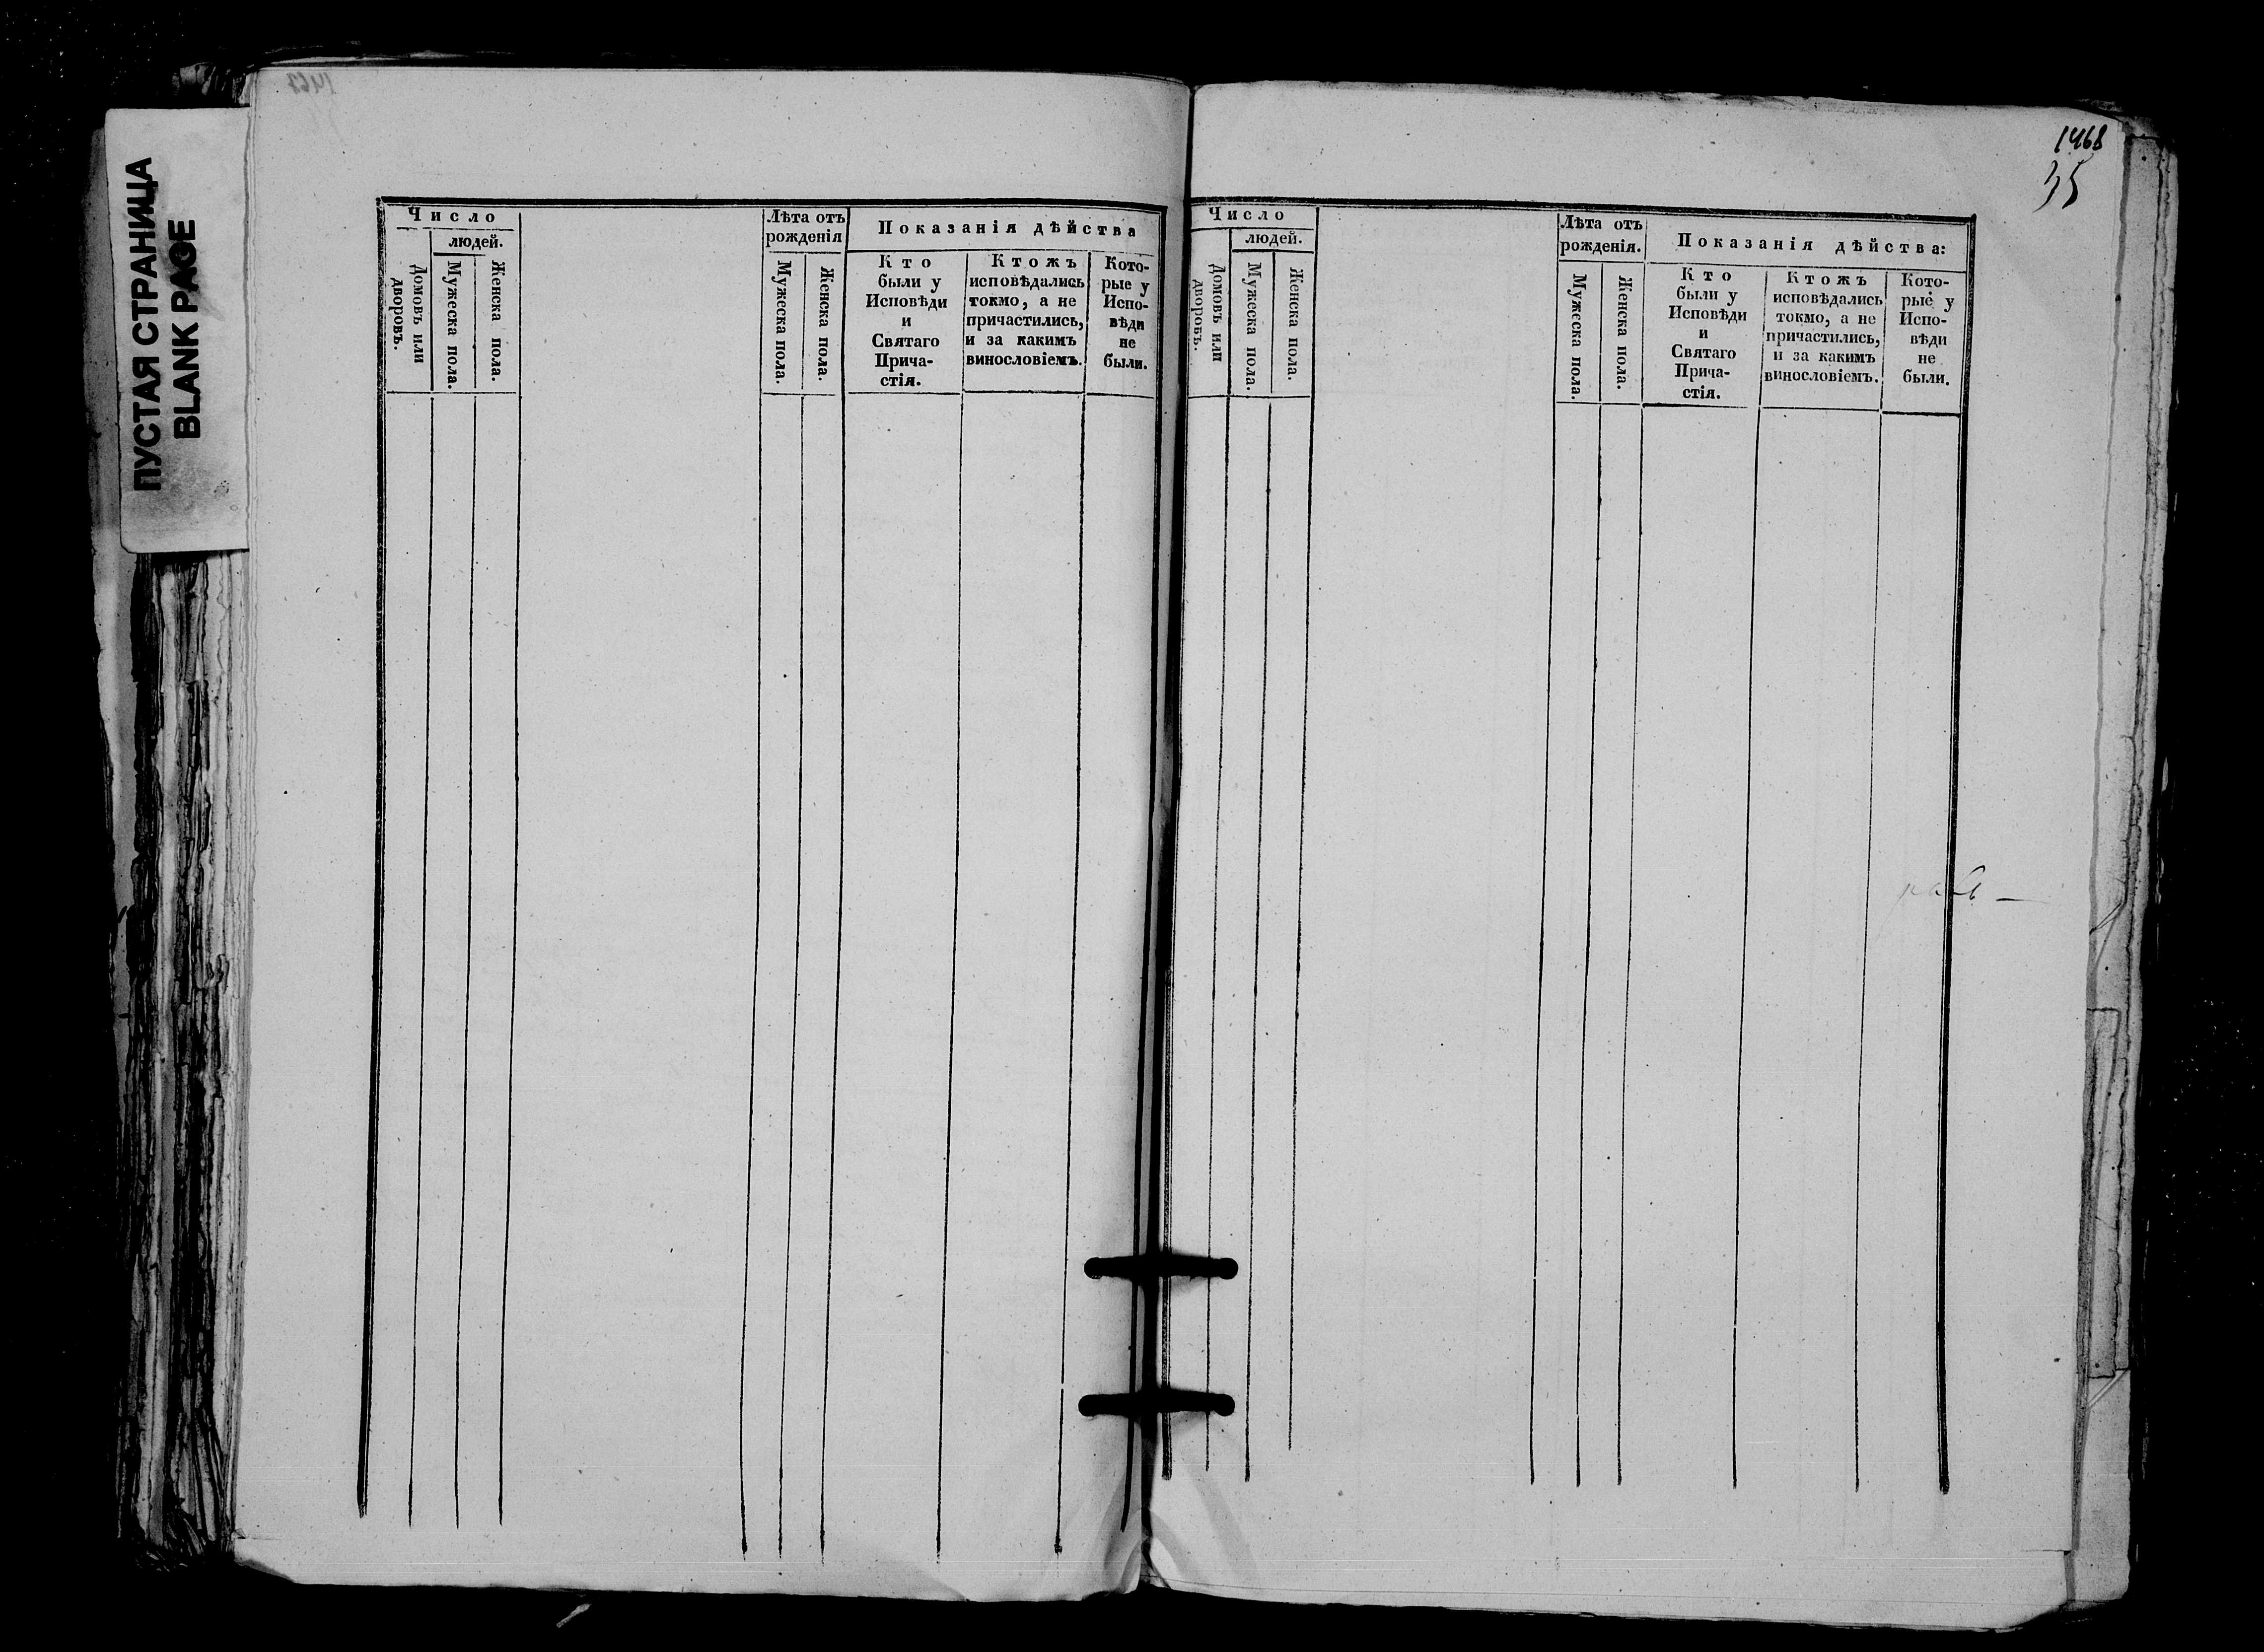 ПУСТАЯ СТРАНИЦА
BLANK PAGE
Число
людей.
Домовъ или
дворовъ.
Мужеска пола.
Женска пола.
Лѣта отъ
рожденія
Мужеска пола.
Женска пола.
Показанія дѣйства
Кто
были у
Исповѣди
и
Святаго
Прича-
стія.
Ктожъ
исповѣдались
токмо, а не
причастились,
и за какимъ
винословіемъ.
Кото-
рые у
Испо-
вѣди
не
были.
1468
35
Число
людей.
Домовъ или
дворовъ.
Мужеска пола.
Женска пола.
Лѣта отъ
рожденія.
Мужеска пола.
Женска пола.
Показанія дѣйства:
Кто
были у
Исповѣди
и
Святаго
Прича-
стія.
Ктожъ
исповѣдались
токмо, а не
причастились,
и за какимъ
винословіемъ.
Кото-
рые у
Испо-
вѣди
не
были.